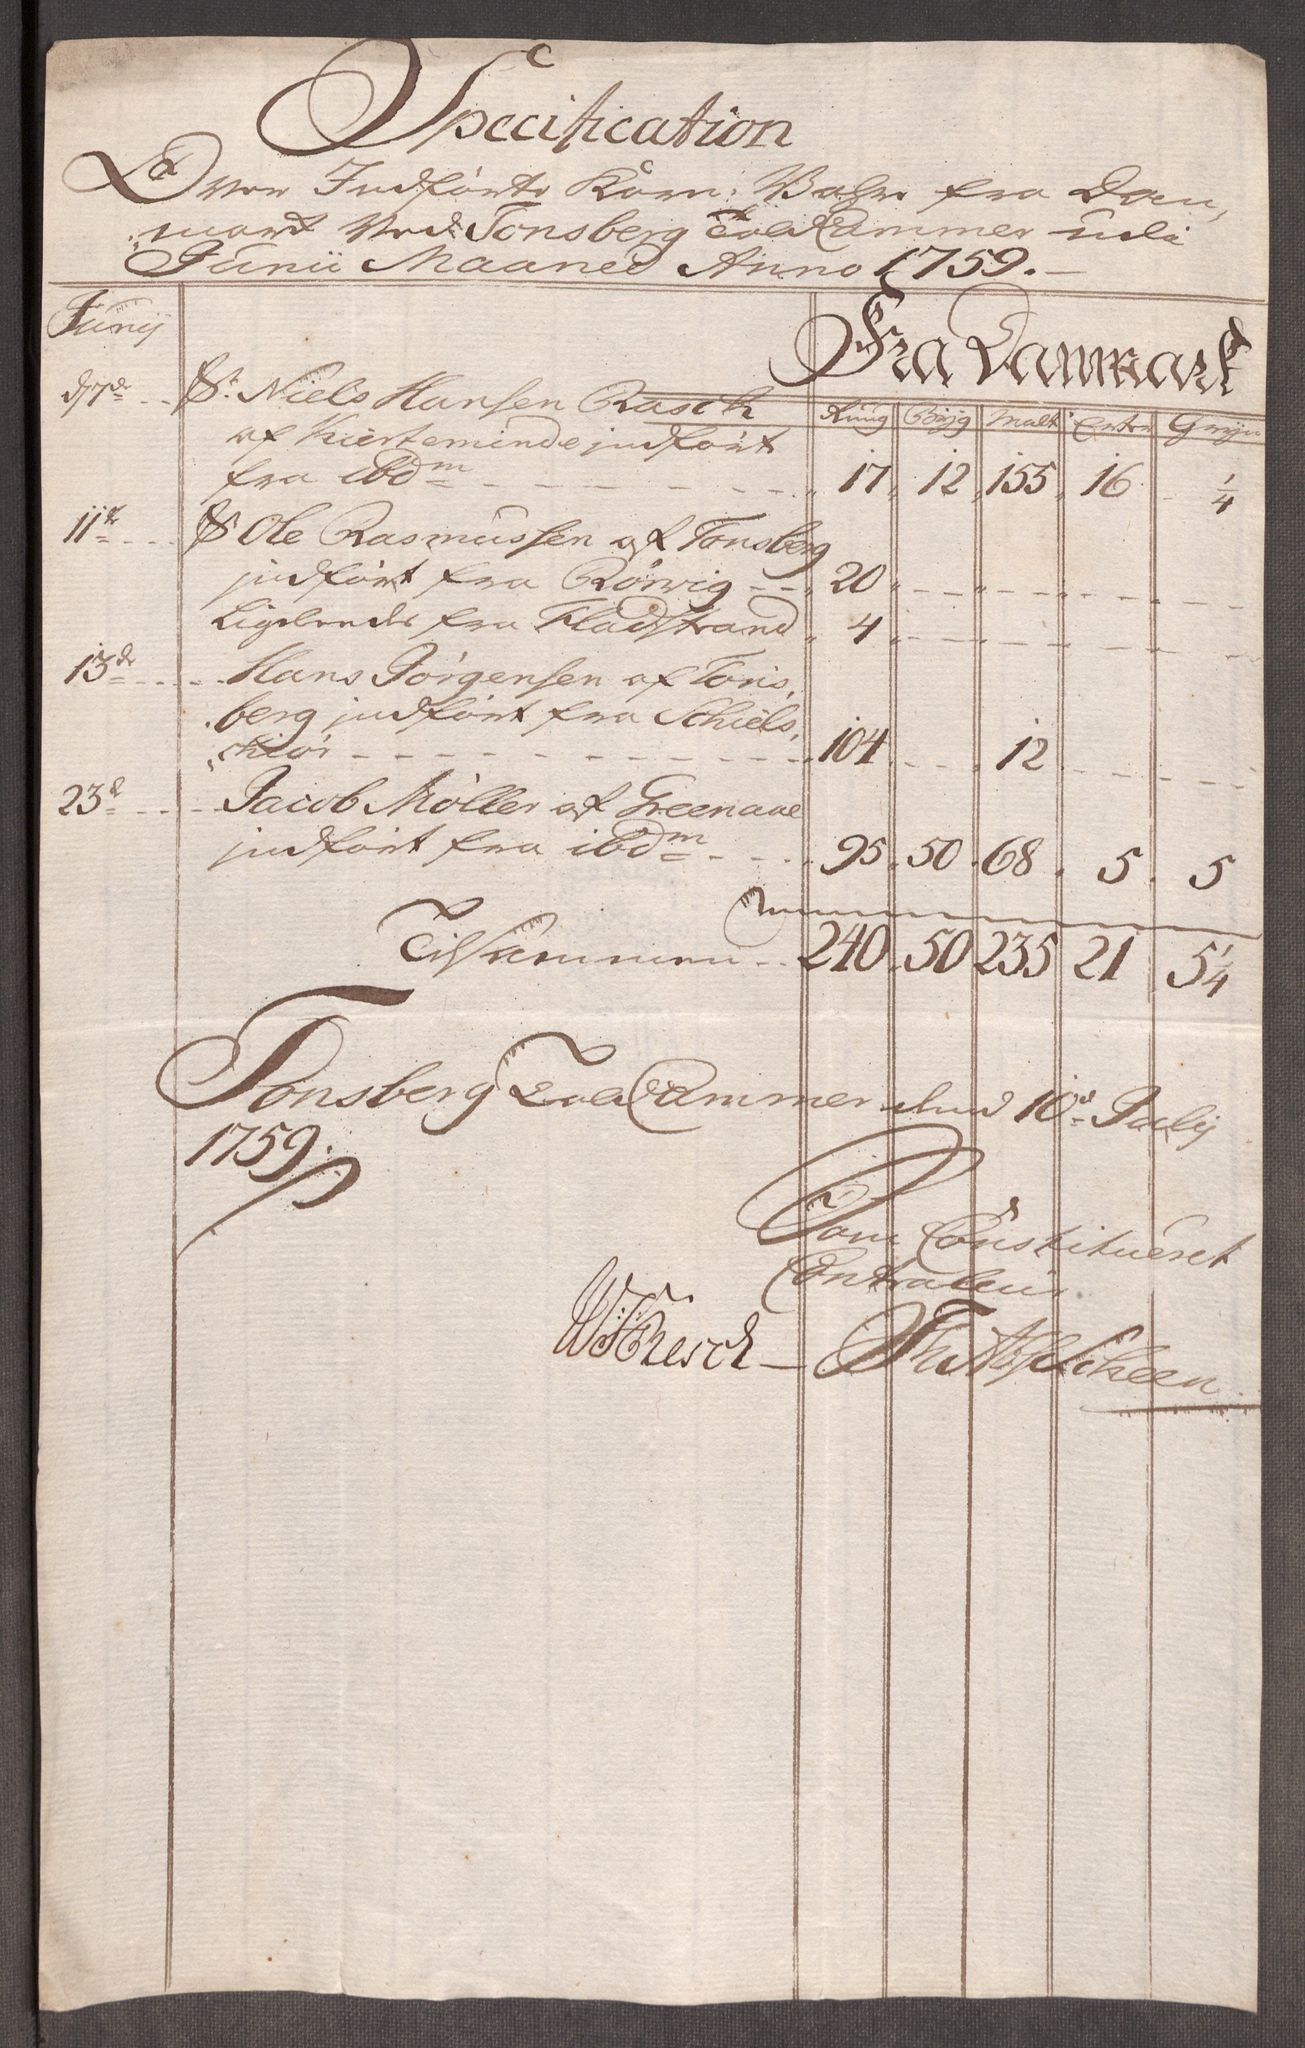 Specification
Over Indførte Korn: Vahre fra Dan,
mark Ved Tonsberg Told Cammer udi
Junii Maaned Anno 1759.
Junij Fra Danmark
Rug Byg Malt Erter Gryn
d 7de Sr. Niels Hansen Rasch
af Kierteminde indført
fra ibdm 17 12 155 16 1/4
11te S Ole Rasmussen af Tonsberg
indført fra Rørvig 20
Ligeledes fra Fladstrand 4
13de Hans Jørgensen af Tons,
berg indført fra Schiels,
chiør 104 12
23d Jacob Møller af Greenaae
indført fra ibdm 95 50 68 5 5
Tilsammen 240 50 235 21 5 1/4
Tonsberg Told Cammer dend 10d Julij
1759
Som Constitueret
Contraleur
Resch